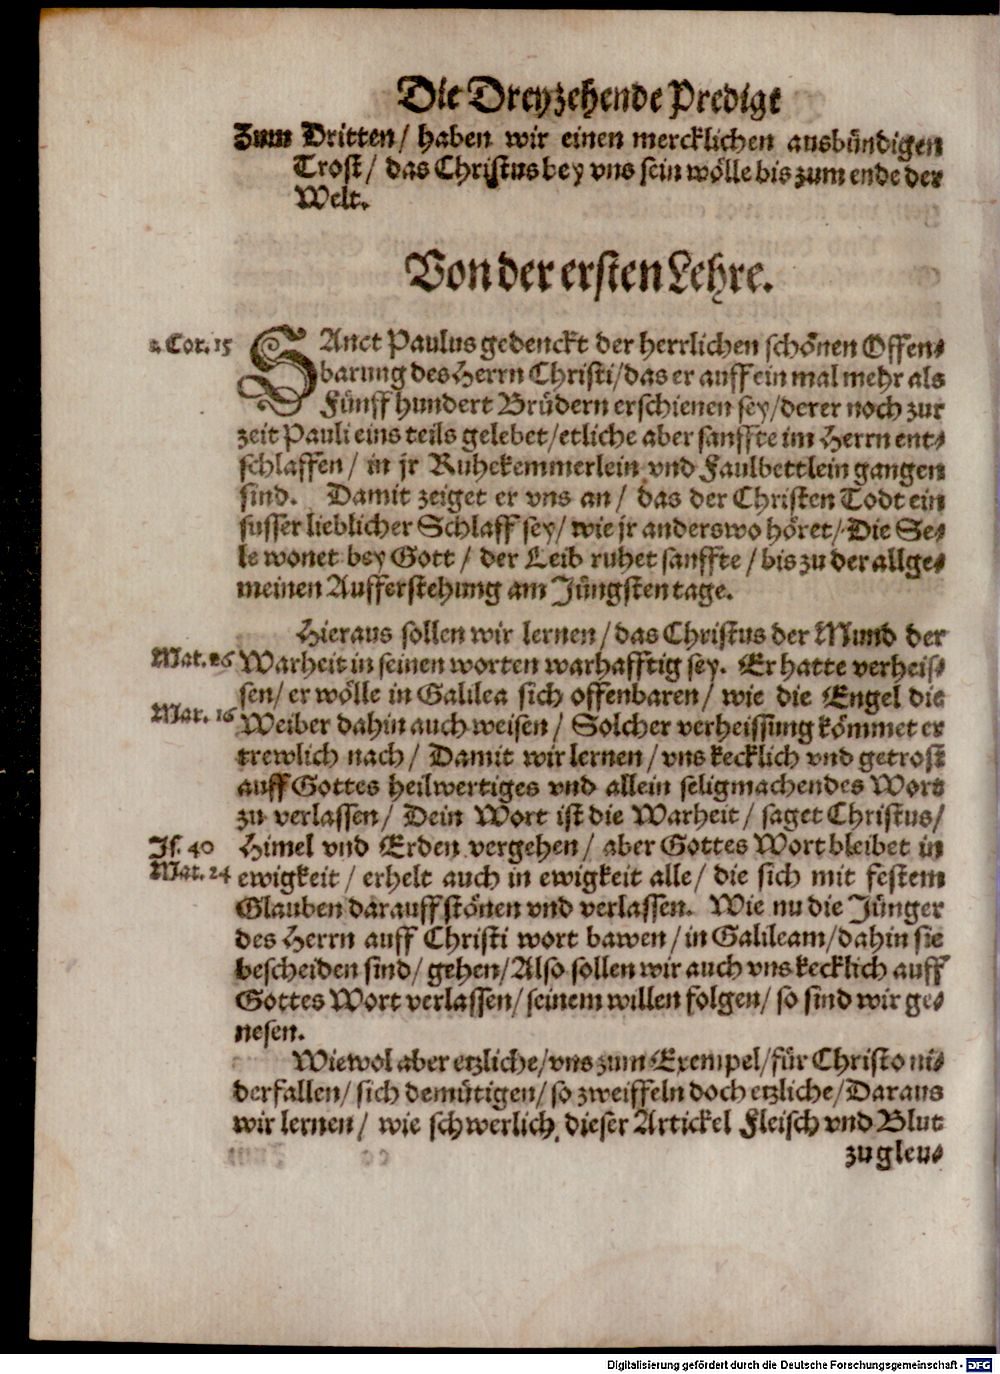 Die Dreyzehende Predigt
Zum Dritten/ haben wir einen mercklichen ausbündigen
Trost/ das Christus bey vns sein wölle bis zum ende der
Welt.
Von der ersten Lehre.
1. Cor. 15
SAnct Paulus gedenckt der herrlichen schönen Offen-
barung des Herrn Christi/ das er auff ein mal mehr als
Fünff hundert Brüdern erschienen sey/ derer noch zur
zeit Pauli eins teils gelebet/ etliche aber sanffte im Herrn ent-
schlaffen/ in jr Ruhekemmerlein vnd Faulbettlein gangen
sind. Damit zeiget er vns an/ das der Christen Todt ein
susser lieblicher Schlaff sey/ wie jr anderswo höret/ Die See-
le wonet bey Gott/ der Leib ruhet sanffte/ bis zu der allge-
meinen Aufferstehung am Jüngsten tage.
Hieraus sollen wir lernen/ das Christus der Mund der
Mat. 26
Warheit in seinen worten warhafftig sey. Er hatte verheis-
sen/ er wölle in Galilea sich offenbaren/ wie die Engel die
Mar. 16
Weiber dahin auch weisen/ Solcher verheissung kömmet er
trewlich nach/ Damit wir lernen/ vns kecklich vnd getrost
auff Gottes heilwertiges vnd allein seligmachendes Wort
zu verlassen/ Dein Wort ist die Warheit/ saget Christus/
Js. 40
Himel vnd Erden vergehen/ aber Gottes Wort bleibet in
Mat. 24
ewigkeit/ erhelt auch in ewigkeit alle/ die sich mit festem
Glauben darauff stönen vnd verlassen. Wie nu die Jünger
des Herrn auff Christi wort bawen/ in Galileam/ dahin sie
bescheiden sind/ gehen/ Also sollen wir auch vns kecklich auff
Gottes Wort verlassen/ seinem willen folgen/ so sind wir ge-
nesen.
Wiewol aber etzliche/ vns zum Exempel/ für Christo ni-
derfallen/ sich demütigen/ so zweiffeln doch etzliche/ Daraus
wir lernen/ wie schwerlich dieser Artickel Fleisch vnd Blut
zu gleu-
Digitalisierung gefördert durch die Deutsche Forschungsgemeinschaft - DFG